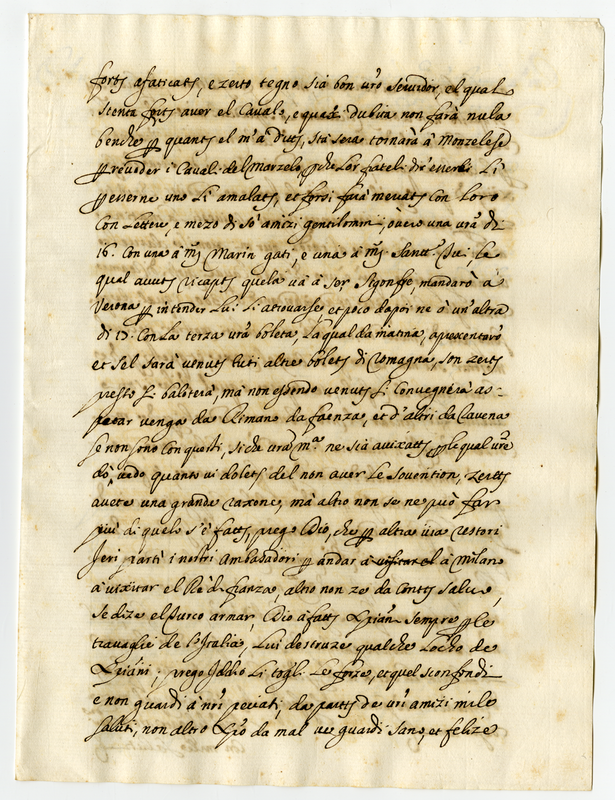 forts afaticats, e zerto tegno sia bon vro servidor, el qual
stenta forts aver el Caval, e qual dubita non farà nula
benche p quants el m'à ditts, sta sera tornarà à Monzelese
p reveder i Cavali del Marzelo, pche Lor fateli dir esserli Li
p esserne uno Li amalats, et forsi farà mercats con Loro
con Lettere, e mezo di so amizi gentilomini, overo una vra di
16. con una à mj Marin gati, e una à mj Santt Qui. Le
qual avuts ricapts quela và à sor Sigonffe, mandarò à
Verona p intender Lui Li atrovarse et poco dapoi ne ò un'altra
di 17. con La terza vra boleta, La qual da matina, apresentarò
et sel sarà venuts tuti altre bolets di Romagna, son zerts
presto si baloterà, mà non essendo venuts si convegnerà as-
petar venga da Rimano da faenza, et d'altri da Ravena
se non sono con questi, siche vra mª. ne sia avixatts p le qual vre
dò, vedo quanto vi dolets del non aver Le sovention, zertts
avete una grande raxone, mà altro non se ne può far
più di quelo s'è fatts, prego Idio, che p altra via restori
Jeri partì i nostri Ambasadori p andar à visitar el à Milan
à vixitar el Rè di franza, altro non zè da conts salvo,
se dize el Turco armar, Idio à fatts Xpiàn sempre p le
travaglie de l'Italia, Lui destruze qualche Locho de
Xpiàni, prego Iddio Li togli Le forze, et quel sconfondi
e non guardi à nri pecati, da parts de vri amizi mile
saluti, non altro Xpo da mal ve guardi sano, et felize